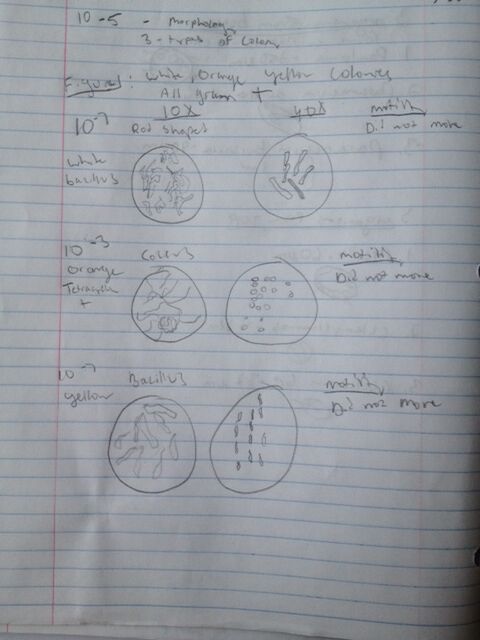 10-5 - morphology
3-types of Colony
Figures: White, Orange Yellow Colonies
All gram +
10X 40X motility
10-7 Rod Shaped Did not move
White
bacillus
10-3 motility
Orange Did not move
+
10-7 Bacillus motility
Yellow Did not move